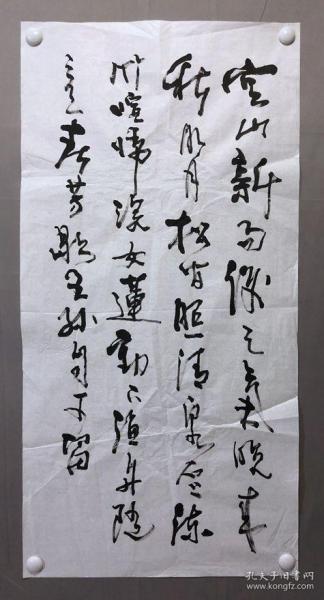 空山新雨後天氣晚来
秋明月松间照清泉石上流
竹喧歸浣女蓮動下漁舟随
意春芳歇王孫自可留
孔夫子旧书网
www.kongfz.com